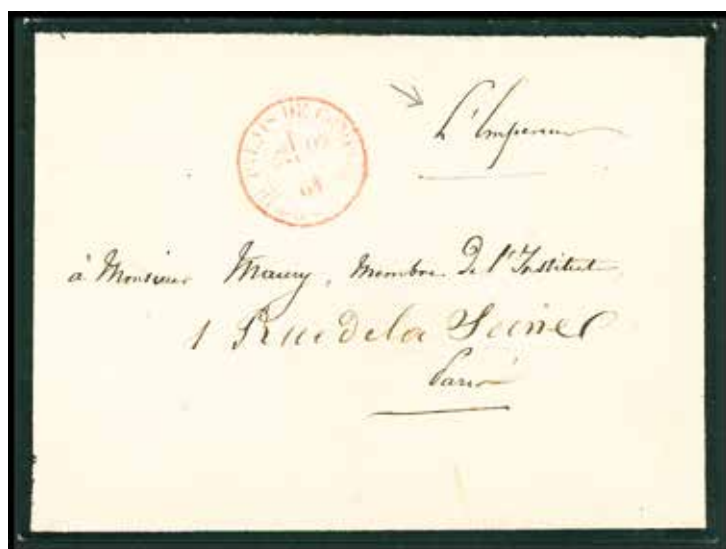 L'Empereur
PALAIS DE
61
à Monsieur Maury, membre de l'Institut
1 Rue de la Seine
Paris